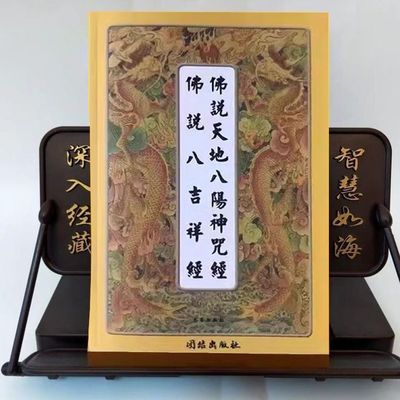 佛說天地八陽神咒經
佛說八吉祥經
智慧如海
深入經藏
團结出版社